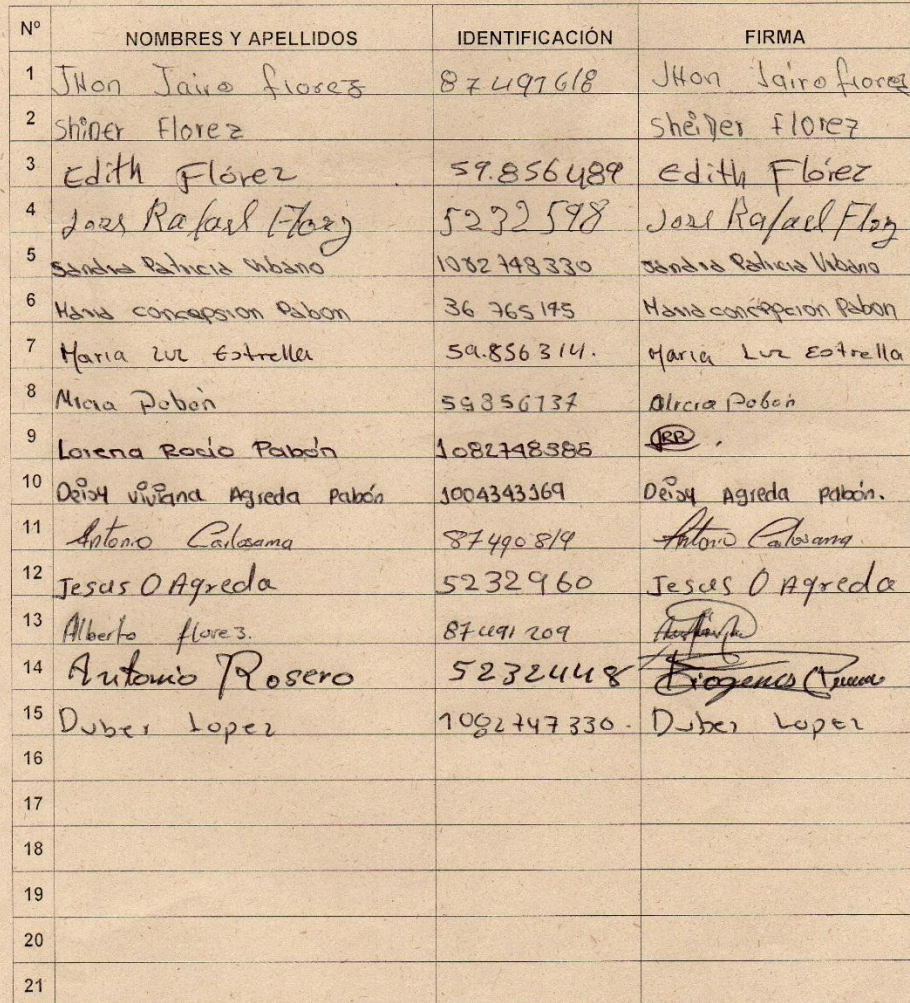 Nº NOMBRES Y APELLIDOS IDENTIFICACIÓN FIRMA
1 JHon Jairo florez 87491618 JHon Jairo florez
2 Shiner Florez Sheiner Florez
3 Edith Flórez 59.856489 Edith Flórez
4 Jose Rafael Florez 5232598 Jose Rafael Florez
5 Sandra Patricia Urbano 1082748330 Sandra Patricia Urbano
6 Maria concepsion Pabon 36 765195 Maria concepcion Pabon
7 Maria Luz Estrella 59.856314. Maria Luz Estrella
8 Pabón 59856737 Alicia Pabón
9 Lorena Rocío Pabón 1082748385
10 Deisy viviana Agreda Pabón 1004343169 Deisy Agreda pabón.
11 Antonio Carlosama 87490819 Antonio Carlosama
12 Jesus O Agreda 5232960 Jesus O Agreda
13 Alberto florez. 87491209
14 Antonio Rosero 5232448 Diogenes
15 Duber Lopez 1082747330. Duber Lopez
16
17
18
19
20
21